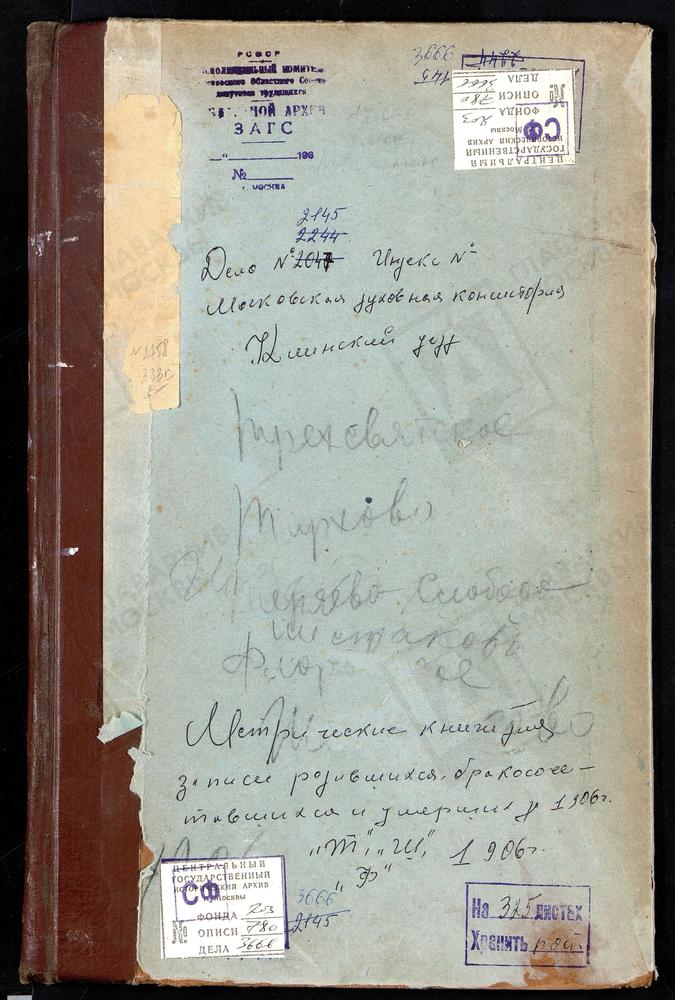 РСФСР
ИСПОЛНИТЕЛЬНЫЙ КОМИТЕТ
депутатов трудящихся
АРХИВ
ЗАГС
„ “ 196
№
г. МОСКВА
3666
2145
2244
ЦЕНТРАЛЬНЫЙ
ГОСУДАРСТВЕННЫЙ
ИСТОРИЧЕСКИЙ АРХИВ
г. Москвы
СФ
№ ФОНДА 203
ОПИСИ 780
ДЕЛА 3666
2145
2244
Дело № 2047 Индекс №
Московская духовная консистория
Клинский уезд
N 1158
333
Трехсвятское
Тархово
Слобода
Шестаково
Метрические книги для
записи родившихся, бракосоче-
тавшихся и умерших з 1906г.
„Т“, „Ш“, 1906г.
„Ф“
ЦЕНТРАЛЬНЫЙ
ГОСУДАРСТВЕННЫЙ
ИСТОРИЧЕСКИЙ АРХИВ
г. Москвы
СФ
№ ФОНДА 203
ОПИСИ 780
ДЕЛА 3666
3666
2145
На 325 листах
Хранить пост.